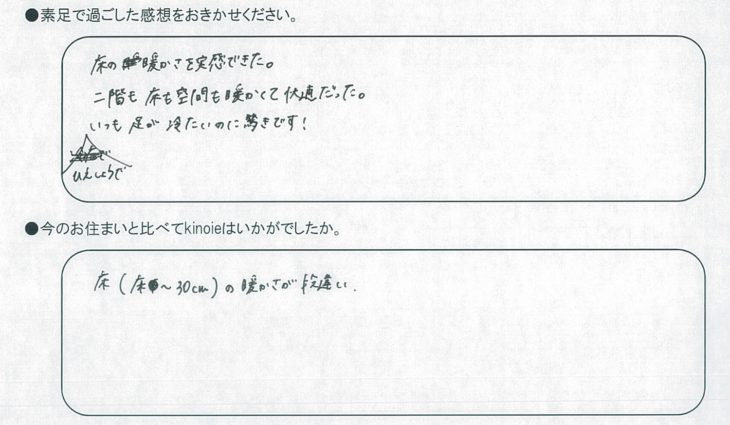 ●素足で過ごした感想をおきかせください。
床の暖かさを実感できた。
二階も床も空間も暖かくて快適だった。
いつも足が冷たいのに驚きです！
ひえしょうで
●今のお住まいと比べてkinoieはいかがでしたか。
床(床〜30cm)の暖かさが段違い.